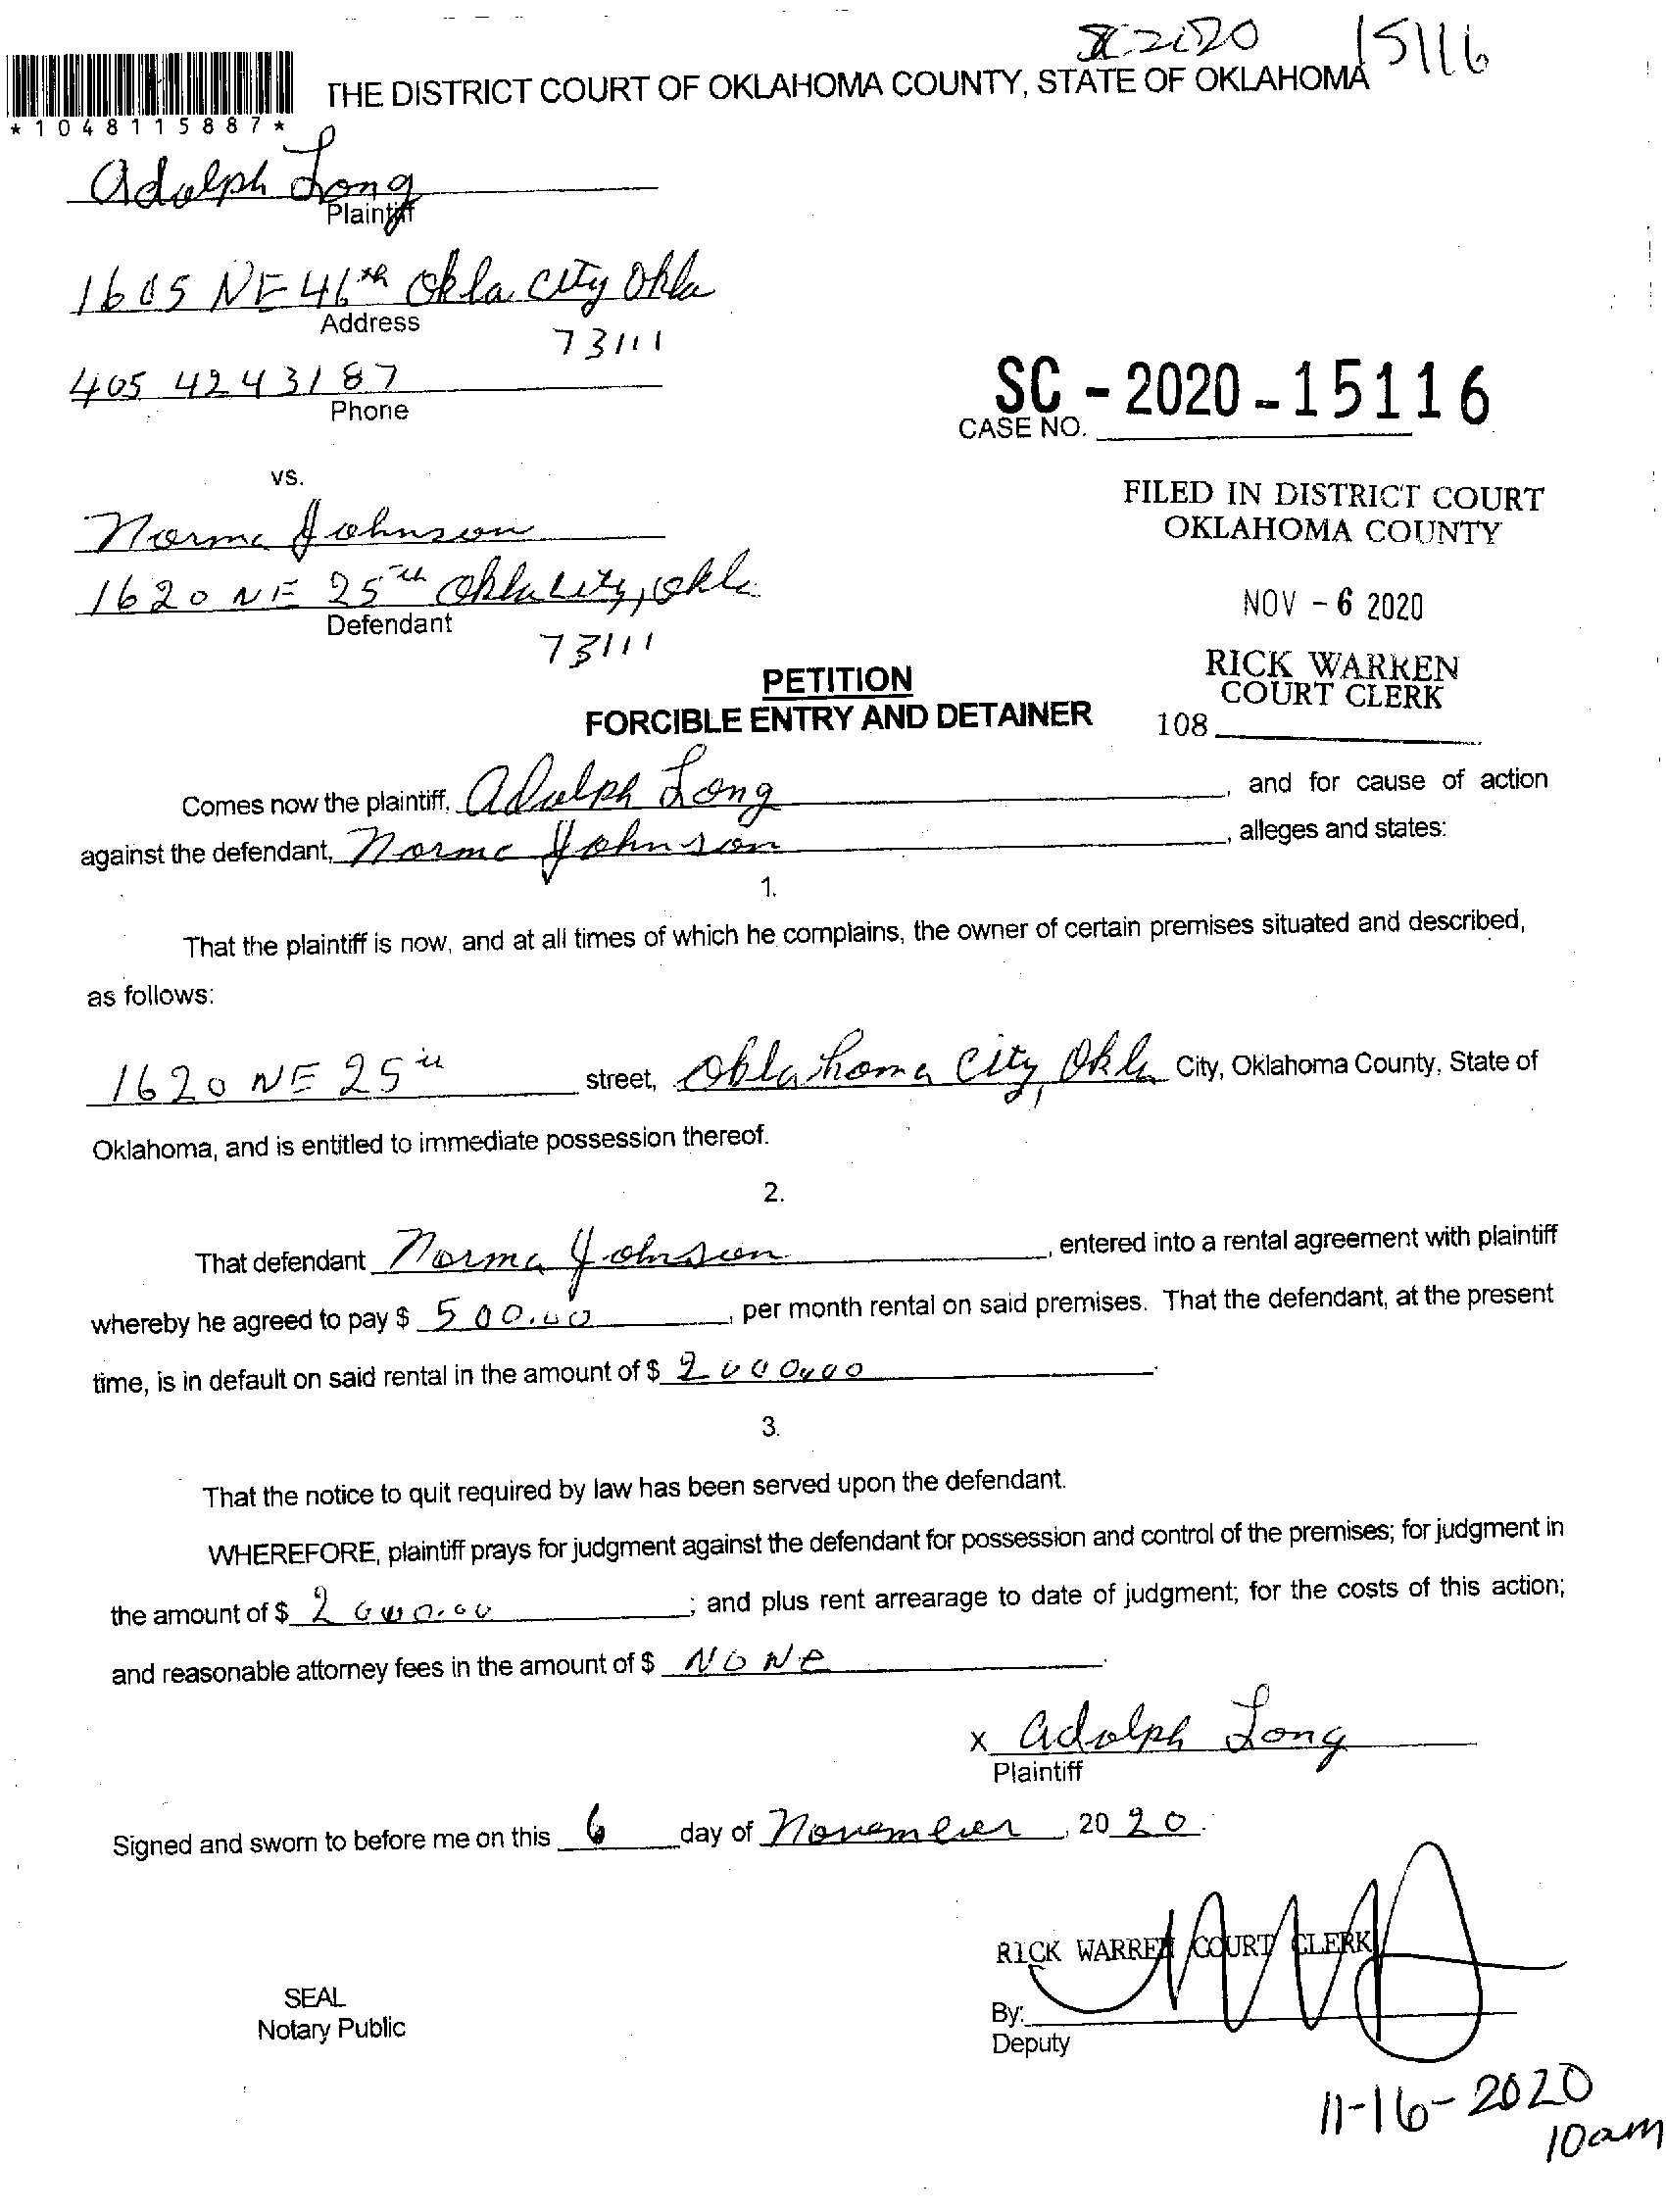 SC 2020 15116
THE DISTRICT COURT OF OKLAHOMA COUNTY, STATE OF OKLAHOMA
*1048115887*
Adolph Long
Plaintiff
1605 NE 46th Okla City Okla
Address
73111
405 424 3187
Phone
SC - 2020 - 15116
CASE NO.
vs.
FILED IN DISTRICT COURT
OKLAHOMA COUNTY
Norma Johnson
1620 NE 25th Okla City, Okla
Defendant
73111
NOV - 6 2020
RICK WARREN
COURT CLERK
108
PETITION
FORCIBLE ENTRY AND DETAINER
Comes now the plaintiff, Adolph Long, and for cause of action
against the defendant, Norma Johnson, alleges and states:
1.
That the plaintiff is now, and at all times of which he complains, the owner of certain premises situated and described,
as follows:
1620 NE 25th street, Oklahoma City, Okla City, Oklahoma County, State of
Oklahoma, and is entitled to immediate possession thereof.
2.
That defendant Norma Johnson, entered into a rental agreement with plaintiff
whereby he agreed to pay $ 500.00, per month rental on said premises. That the defendant, at the present
time, is in default on said rental in the amount of $ 2000.00.
3.
That the notice to quit required by law has been served upon the defendant.
WHEREFORE, plaintiff prays for judgment against the defendant for possession and control of the premises; for judgment in
the amount of $ 2000.00; and plus rent arrearage to date of judgment; for the costs of this action;
and reasonable attorney fees in the amount of $ NONe.
X Adolph Long
Plaintiff
Signed and sworn to before me on this 6 day of November, 20 20.
RICK WARREN COURT CLERK
SEAL
Notary Public
By:
Deputy
11-16-2020
10am